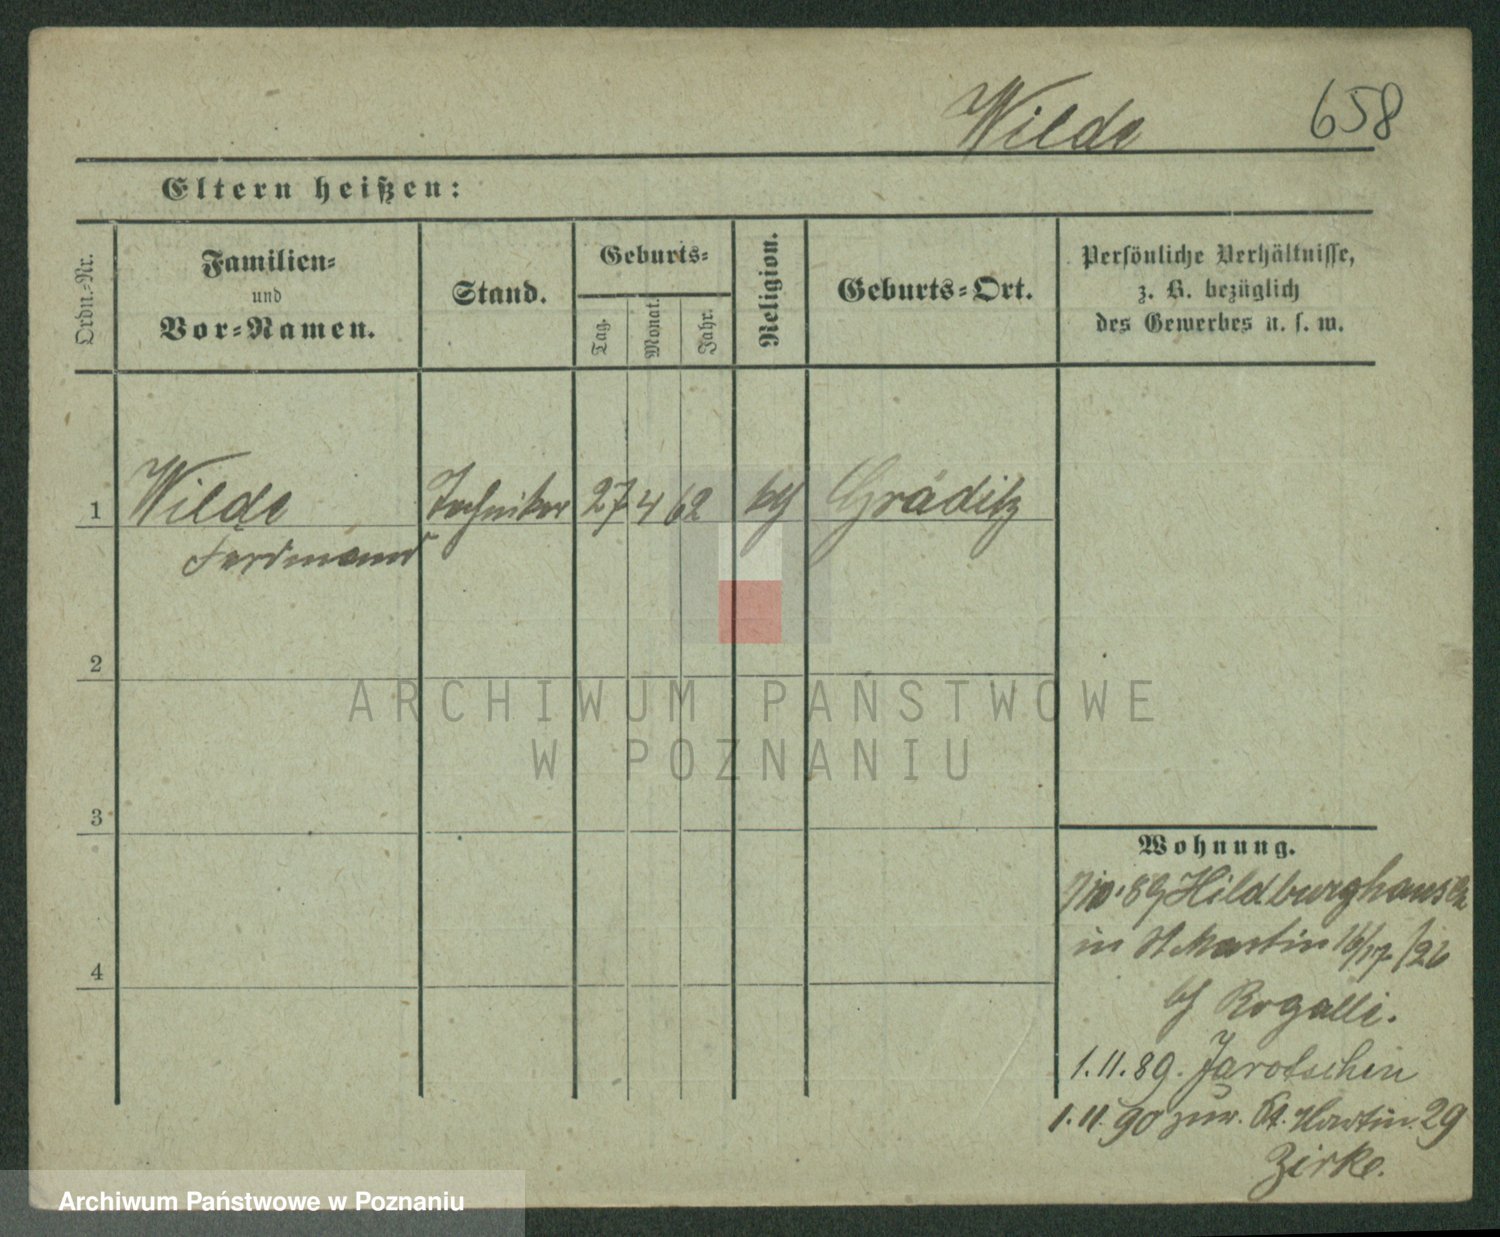 Wilde 658
Eltern heißen:
Ordn.-Nr.
Familien-
und
Vor-Namen.
Stand.
Geburts-
Tag.
Monat.
Jahr.
Religion.
Geburts-Ort.
Persönliche Verhältnisse,
z. B. bezüglich
des Gewerbes u. s. w.
1 Wilde Techniker 27 4 62 Gräditz
Ferdinand
2
3
4
Wohnung.
89 Hildburghausen
in St Martin 16/17 /26
Rogalli.
1.11.89. Jarotschin
1.11.90 zur. St. Martin. 29
Zirke.
ARCHIWUM PAŃSTWOWE
W POZNANIU
Archiwum Państwowe w Poznaniu